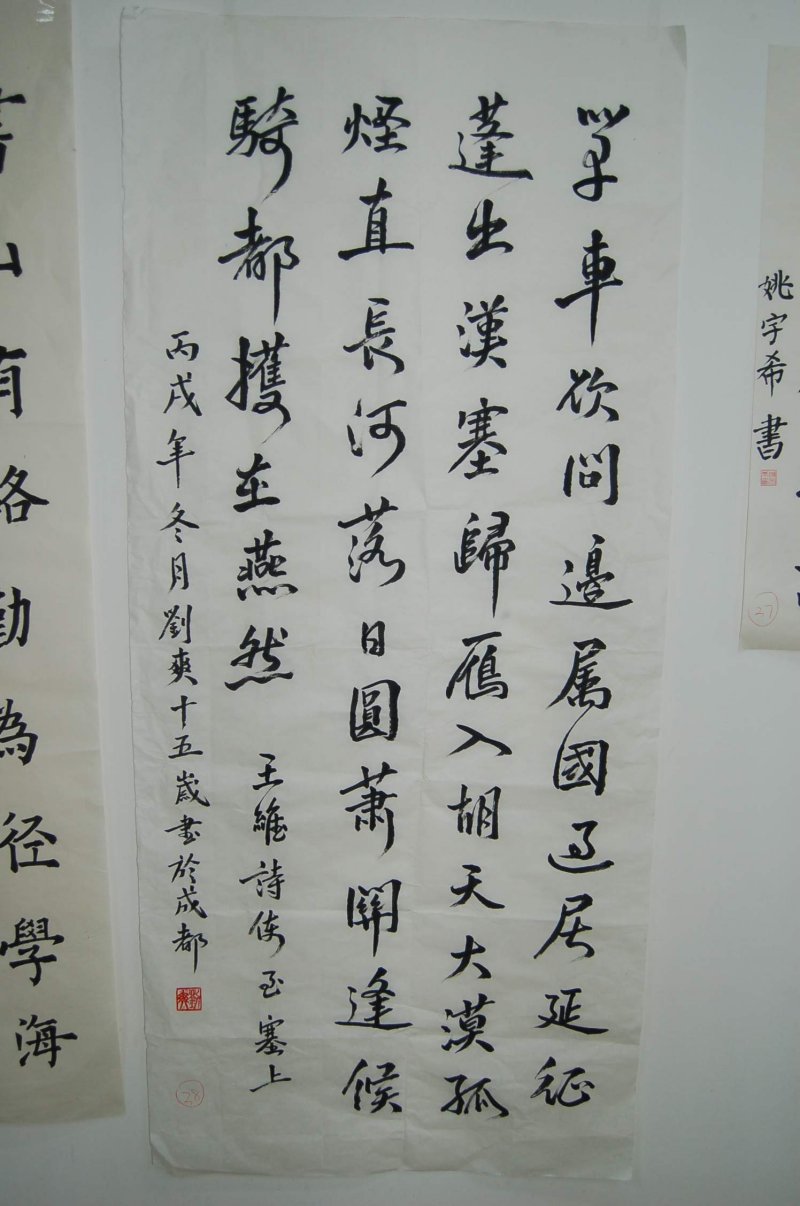 姚宇希書
27
單車欲問邊属國過居延征
蓬出漢塞歸鴈入胡天大漠孤
煙直長河落日圓蕭關逢候
騎都護在燕然 王維詩使至塞上
丙戌年冬月劉爽十五歲書於成都
28
書山有路勤為径學海